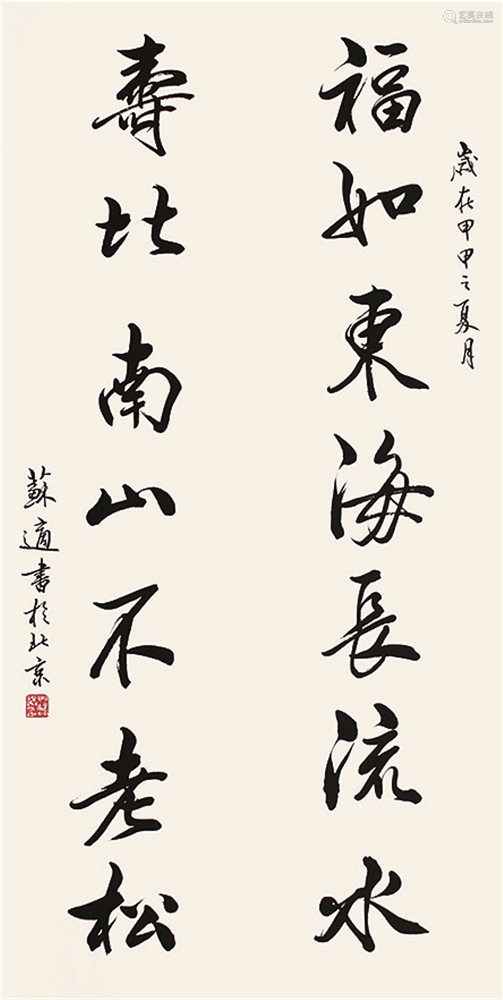 艺狐在线
歲在甲申之夏月
福如東海長流水
壽比南山不老松
蘇適書於北京